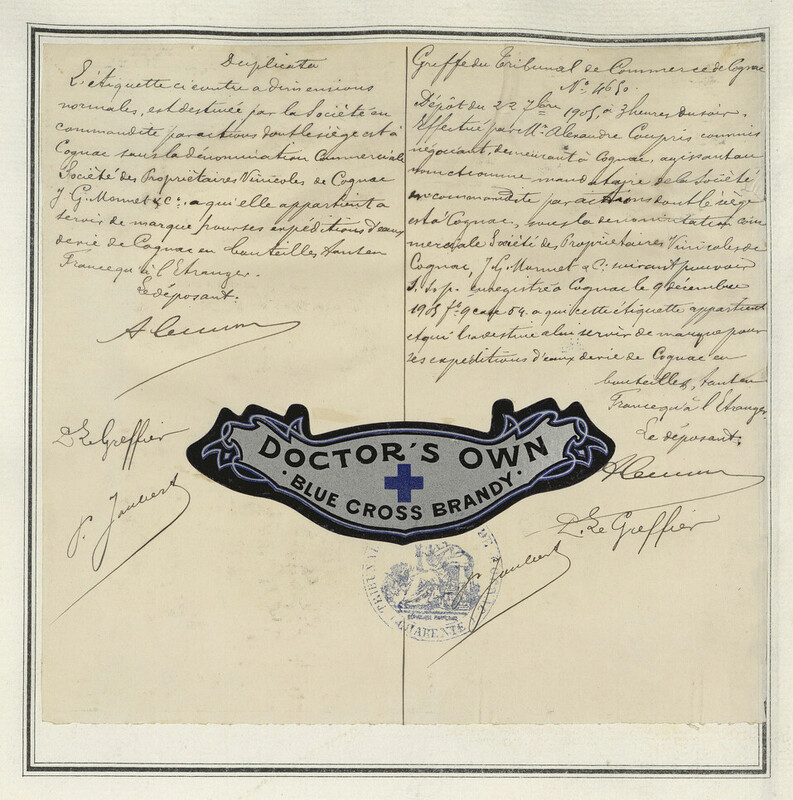 Duplicata
L'étiquette ci contre a dimensions
normales, est destinée par la Société en
commandite par actions dont le siège est à
Cognac sous la dénomination Commerciale
Société des Propriétaires Vinicoles de Cognac
J. G. Monnet & Cº. a qui elle appartient à
servir de marque pour ses expéditions d'eaux
de vie de Cognac en bouteilles tant en
France qu'à l'Etranger.
Le déposant.
Le Greffier
p. Joubert
Greffe du Tribunal de Commerce de Cognac
Nº 4650.
Dépôt du 22 7bre 1905, à 3 heures du soir.
Effectué par Mr. Alexandre Coupris commis
négociant, demeurant à Cognac, agissant au
nom et comme mandataire de la Société
en commandite par actions dont le siège
est à Cognac, sous la dénomination com
merciale Société des Propriétaires Vinicoles de
Cognac, J. G. Monnet & Cº. suivant pouvoir
s. s. p. enregistré à Cognac le 9 décembre
1905 fº 9 case 54. a qui cette étiquette appartient
et qui la destine a lui servir de marque pour
ses expéditions d'eaux de vie de Cognac en
bouteilles, tant en
France qu'à l'Etranger.
Le déposant:
Le Greffier
p. Joubert
DOCTOR'S OWN
· BLUE CROSS BRANDY ·
TRIBUNAL DE
CHARENTE